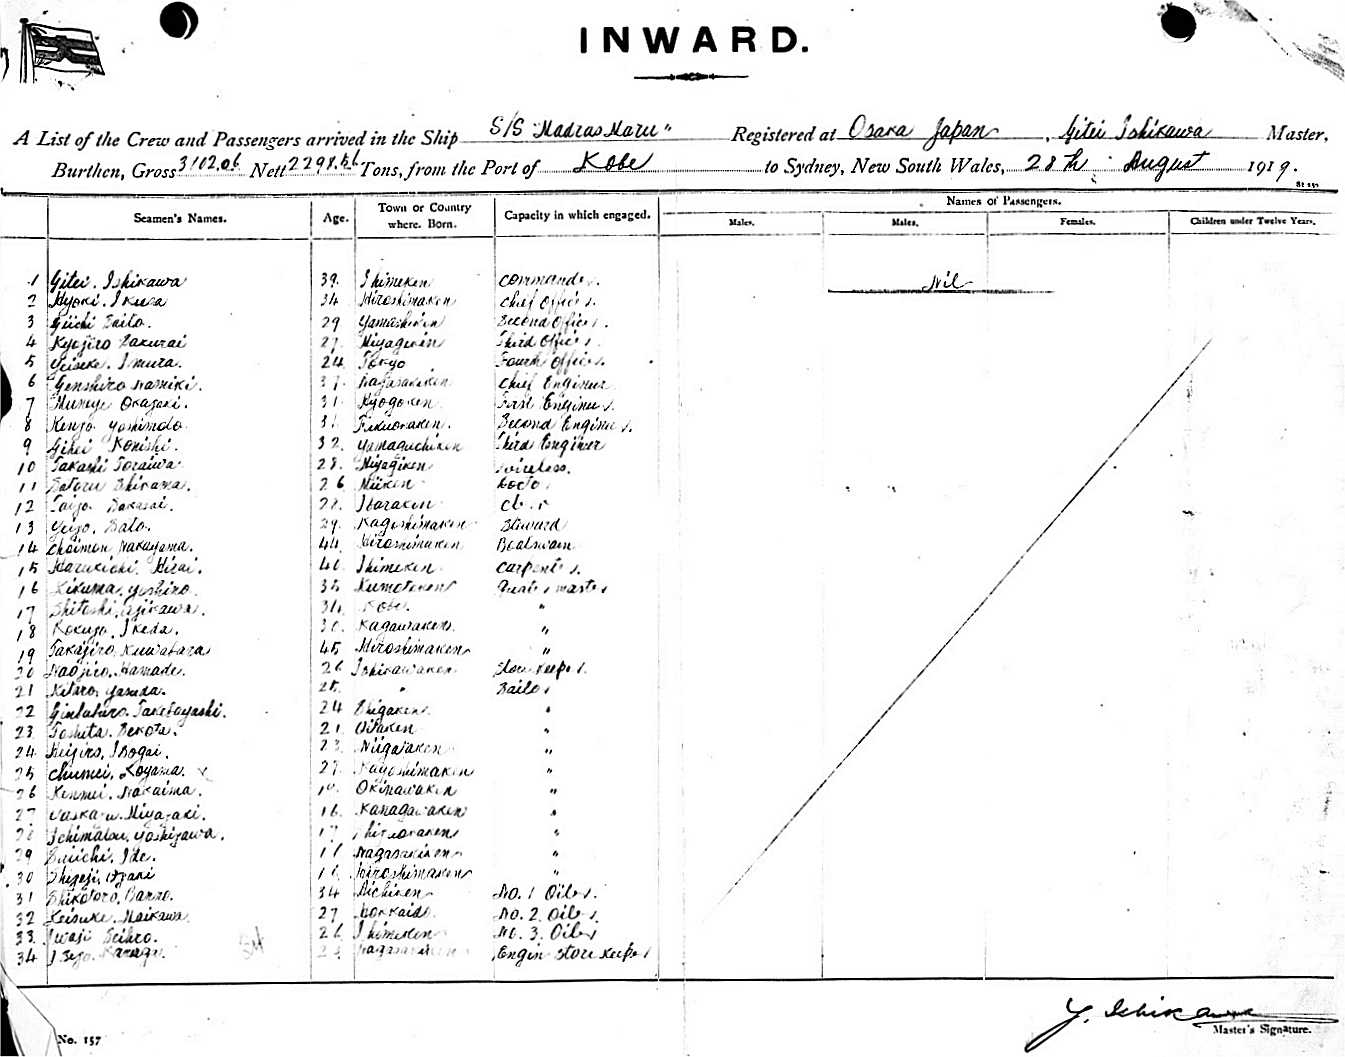 INWARD.
A List of the Crew and Passengers arrived in the Ship S/S "Madras Maru" Registered at Osaka Japan, Gitei Ishikawa Master,
Burthen, Gross 3102.06 Nett 2298.56 Tons, from the Port of Kobe to Sydney, New South Wales, 28th August 1919.
Seamen's Names. Age. Town or Country where. Born. Capacity in which engaged. Names of Passengers.
Males. Males. Females. Children under Twelve Years.
1 Gitei. Ishikawa 39. Ihimeken Commander. Nil
2 Hyoki. Ikusa 34 Hiroshimaken Chief Officer.
3 Giichi Saito. 29 Second Officer.
4 Kyojiro Sakurai 27. Miyagiken Third Officer.
5 Imura. 24 Tokyo Fourth Officer.
6 Genshiro Namiki. 37. Nagasakiken Chief Engineer
7 Okazaki. 31. Hyogoken First Engineer.
8 Kenjo Yoshimoto 31. Fukuokaken. Second Engineer.
9 Gihei Konishi. 32. Yamaguchiken Third Engineer
10 Takashi 28. Miyagiken Wireless.
11 Satoru 26 Doctor
12 Taijo 22. Ibaraken
13 Sato. 29. Kagoshimaken Steward
14 Nakayama. 44. Hiroshimaken Boatswain
15 Harukichi. Hirai. 40. Ihimeken Carpenter.
16 Kikuma. Yoshino. 35 Quarter master
17 Ajikawa. 34. Kobe. "
18 Ikeda. 30. Kagawaken. "
19 Takajiro. Kuwabara 45. Hiroshimaken "
20 Naojiro. Hamade. 26 Ishikawaken Store keeper.
21 Kitaro. Yasuda. 25. " Sailor
22 Takebayashi. 24 Shigaken. "
23 Toshita. 21. Oitaken "
24 Keijiro. Isogai. 23. Niigataken "
25 Chumei. Koyama. 27. Kagoshimaken "
26 Kenmei. Nakaima. Okinawaken "
27 Miyazaki. 16. Kanagawaken "
28 Ichimatsu. Yoshizawa. 17. "
29 Ide. Nagasakiken "
30 Shigeji. Hiroshimaken "
31 Banno. 34 Aichiken No. 1 Oiler.
32 Keisuke. Maikawa. 27 Hokkaido No. 2. Oiler.
33. Iwaji Seihro. 26 Ihimeken No. 3. Oiler
34 Nagasakiken Engin store keeper
54
Y. Ishikawa
Master's Signature.
No. 157